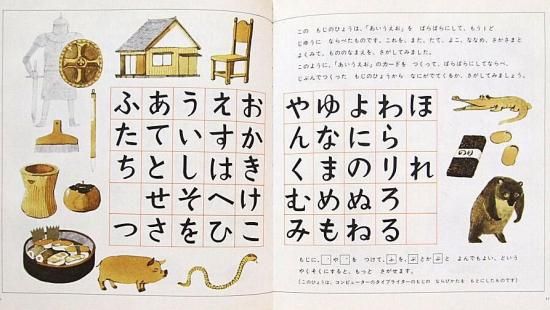 この もじのひょうは、「あいうえお」を ばらばらにして、もう1ど
じゆうに ならべたものです。これを、また、たて、よこ、ななめ、さかさまと
もののなまえを、さがしてみました。
このように、「あいうえお」のカードを つくって、ばらばらにしてならべ、
じぶんでつくった もじのひょうから なにがでてくるか、さがしてみましょう。
ふ あ う え お
た て い す か
ち と し は き
せ そ へ け
つ さ を ひ こ
や ゆ よ わ ほ
ん な に ら
く ま の り れ
む め ぬ ろ
み も ね る
のり
もじに、゛や゜を つけて、ふを、ぶとかぷと よんでもよい、という
やくそくにすると、もっと さがせます。
(このひょうは、コンピューターのタイプライターのもじの ならびかたを もとにしたものです)